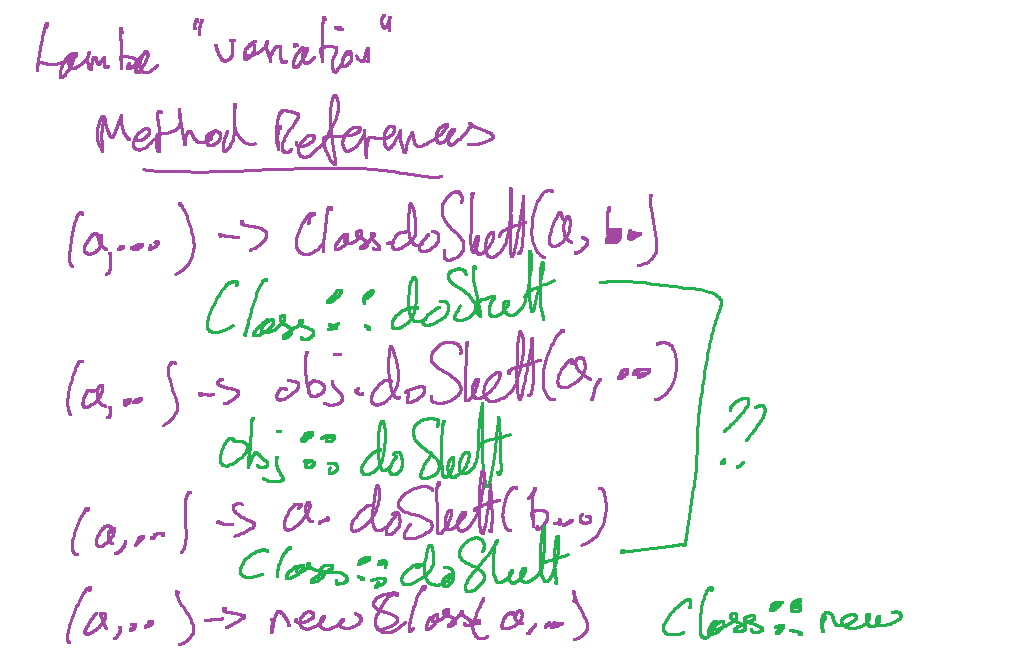 Lambda "variation"
Method References
(a, ...) -> Class.doStuff(a, b..)
Class::doStuff
(a, ...) -> obj.doStuff(a, ...)
obj::doStuff
??
(a, ...) -> a.doStuff(b...)
Class::doStuff
(a, ...) -> new Class(a, ...) Class::new